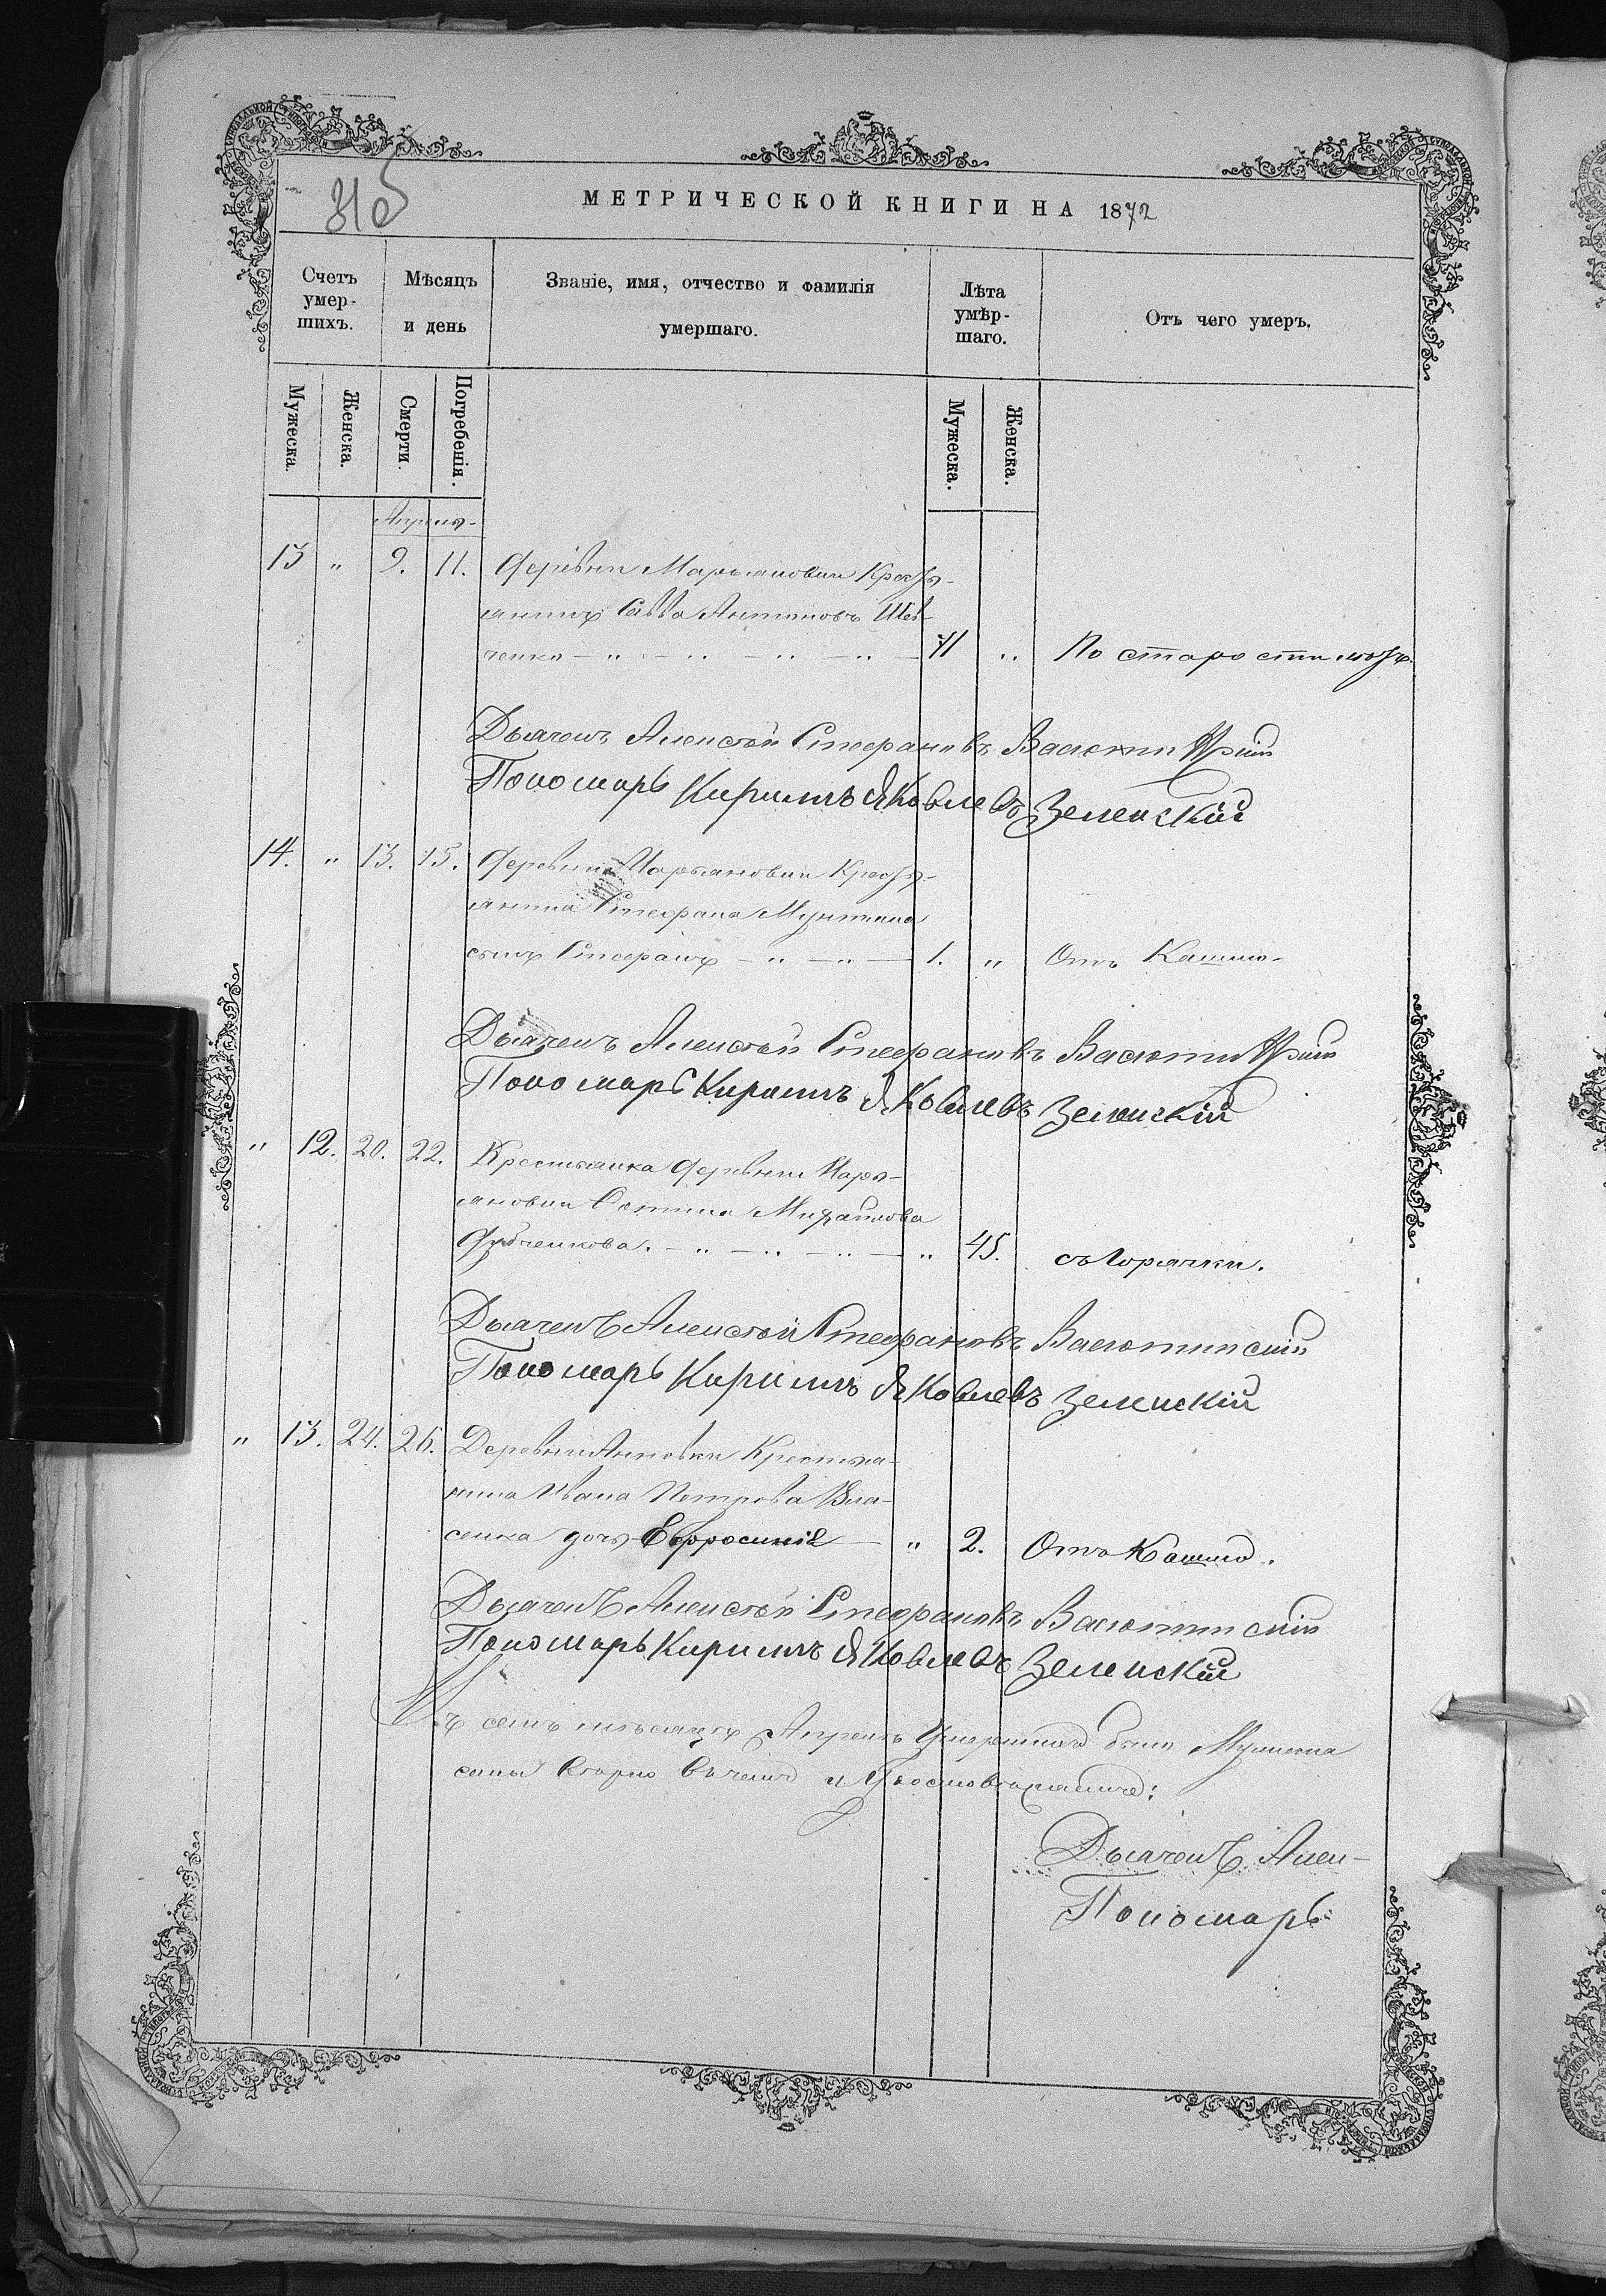 315
МЕТРИЧЕСКОЙ КНИГИ НА 1872
Счетъ умер-шихъ.
Мѣсяцъ и день
Званіе, имя, отчество и фамилія умершаго.
Лѣта умѣр-шаго.
Отъ чего умеръ.
Мужеска. Женска. Смерти. Погребенія. Мужеска. Женска.
Апрель
13 " 9. 11. Деревни Марьяновки Кресть-
янинъ Савва Антиновъ Шев-
ченко — " — " — " — " — 71 " По старости лѣтъ.
Дьячекъ Алексѣй Стефановъ Васютинскій
Пономарь Кирилъ Яковлевъ Зеленскій
14. " 13. 15. Деревни Марьяновки Кресть-
янина Стефана
сынъ Стефанъ — " — " — 1. " Отъ Кашлю
Дьячекъ Алексѣй Стефановъ Васютинскій
Пономарь Кирилъ Яковлевъ Зеленскій
" 12. 20. 22. Крестьянка деревни Марь-
яновки Михайлова
— " — " — " — " 45. съ Горячки.
Дьячекъ Алексѣй Стефановъ Васютинскій
Пономарь Кирилъ Яковлевъ Зеленскій
" 13. 24. 26. Деревни Анновки Крестья-
нина Ивана Петрова Вла-
сенка дочь Евфросинія — " 2. Отъ Кашлю.
Дьячекъ Алексѣй Стефановъ Васютинскій
Пономарь Кирилъ Яковлевъ Зеленскій
Въ семъ мѣсяцѣ Апрель Умершихъ было Мужеска

Дьячекъ Алек-
Пономарь